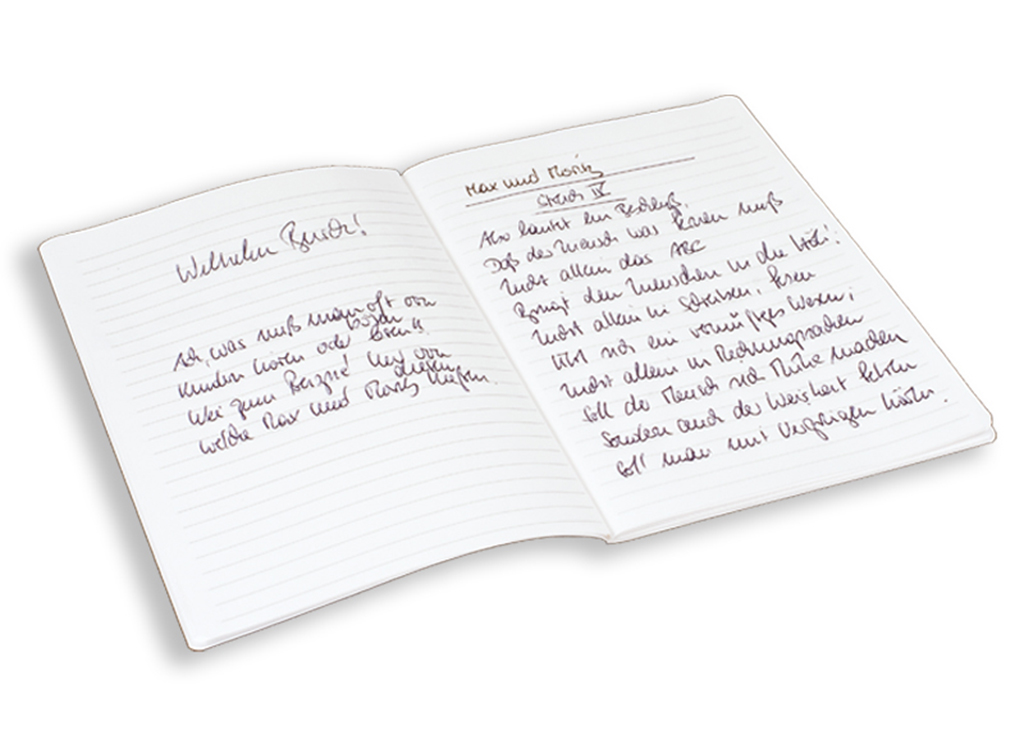 Wilhelm Busch!
Ach, was muß man oft von
bösen
Kindern hören oder lesen!!
Wie zum Beispiel hier von
diesen
welche Max und Moritz hießen.
Max und Moritz
Streich IV
Also lautet ein Beschluß,
Daß der Mensch was lernen muß
Nicht allein das ABC
Bringt den Menschen in die Höh'!
Nicht allein in Schreiben, Lesen
Übt sich ein vernünftiges Wesen;
Nicht allein in Rechnungssachen
Soll der Mensch sich Mühe machen
Sondern auch der Weisheit Lehren
Soll man mit Vergnügen hören.